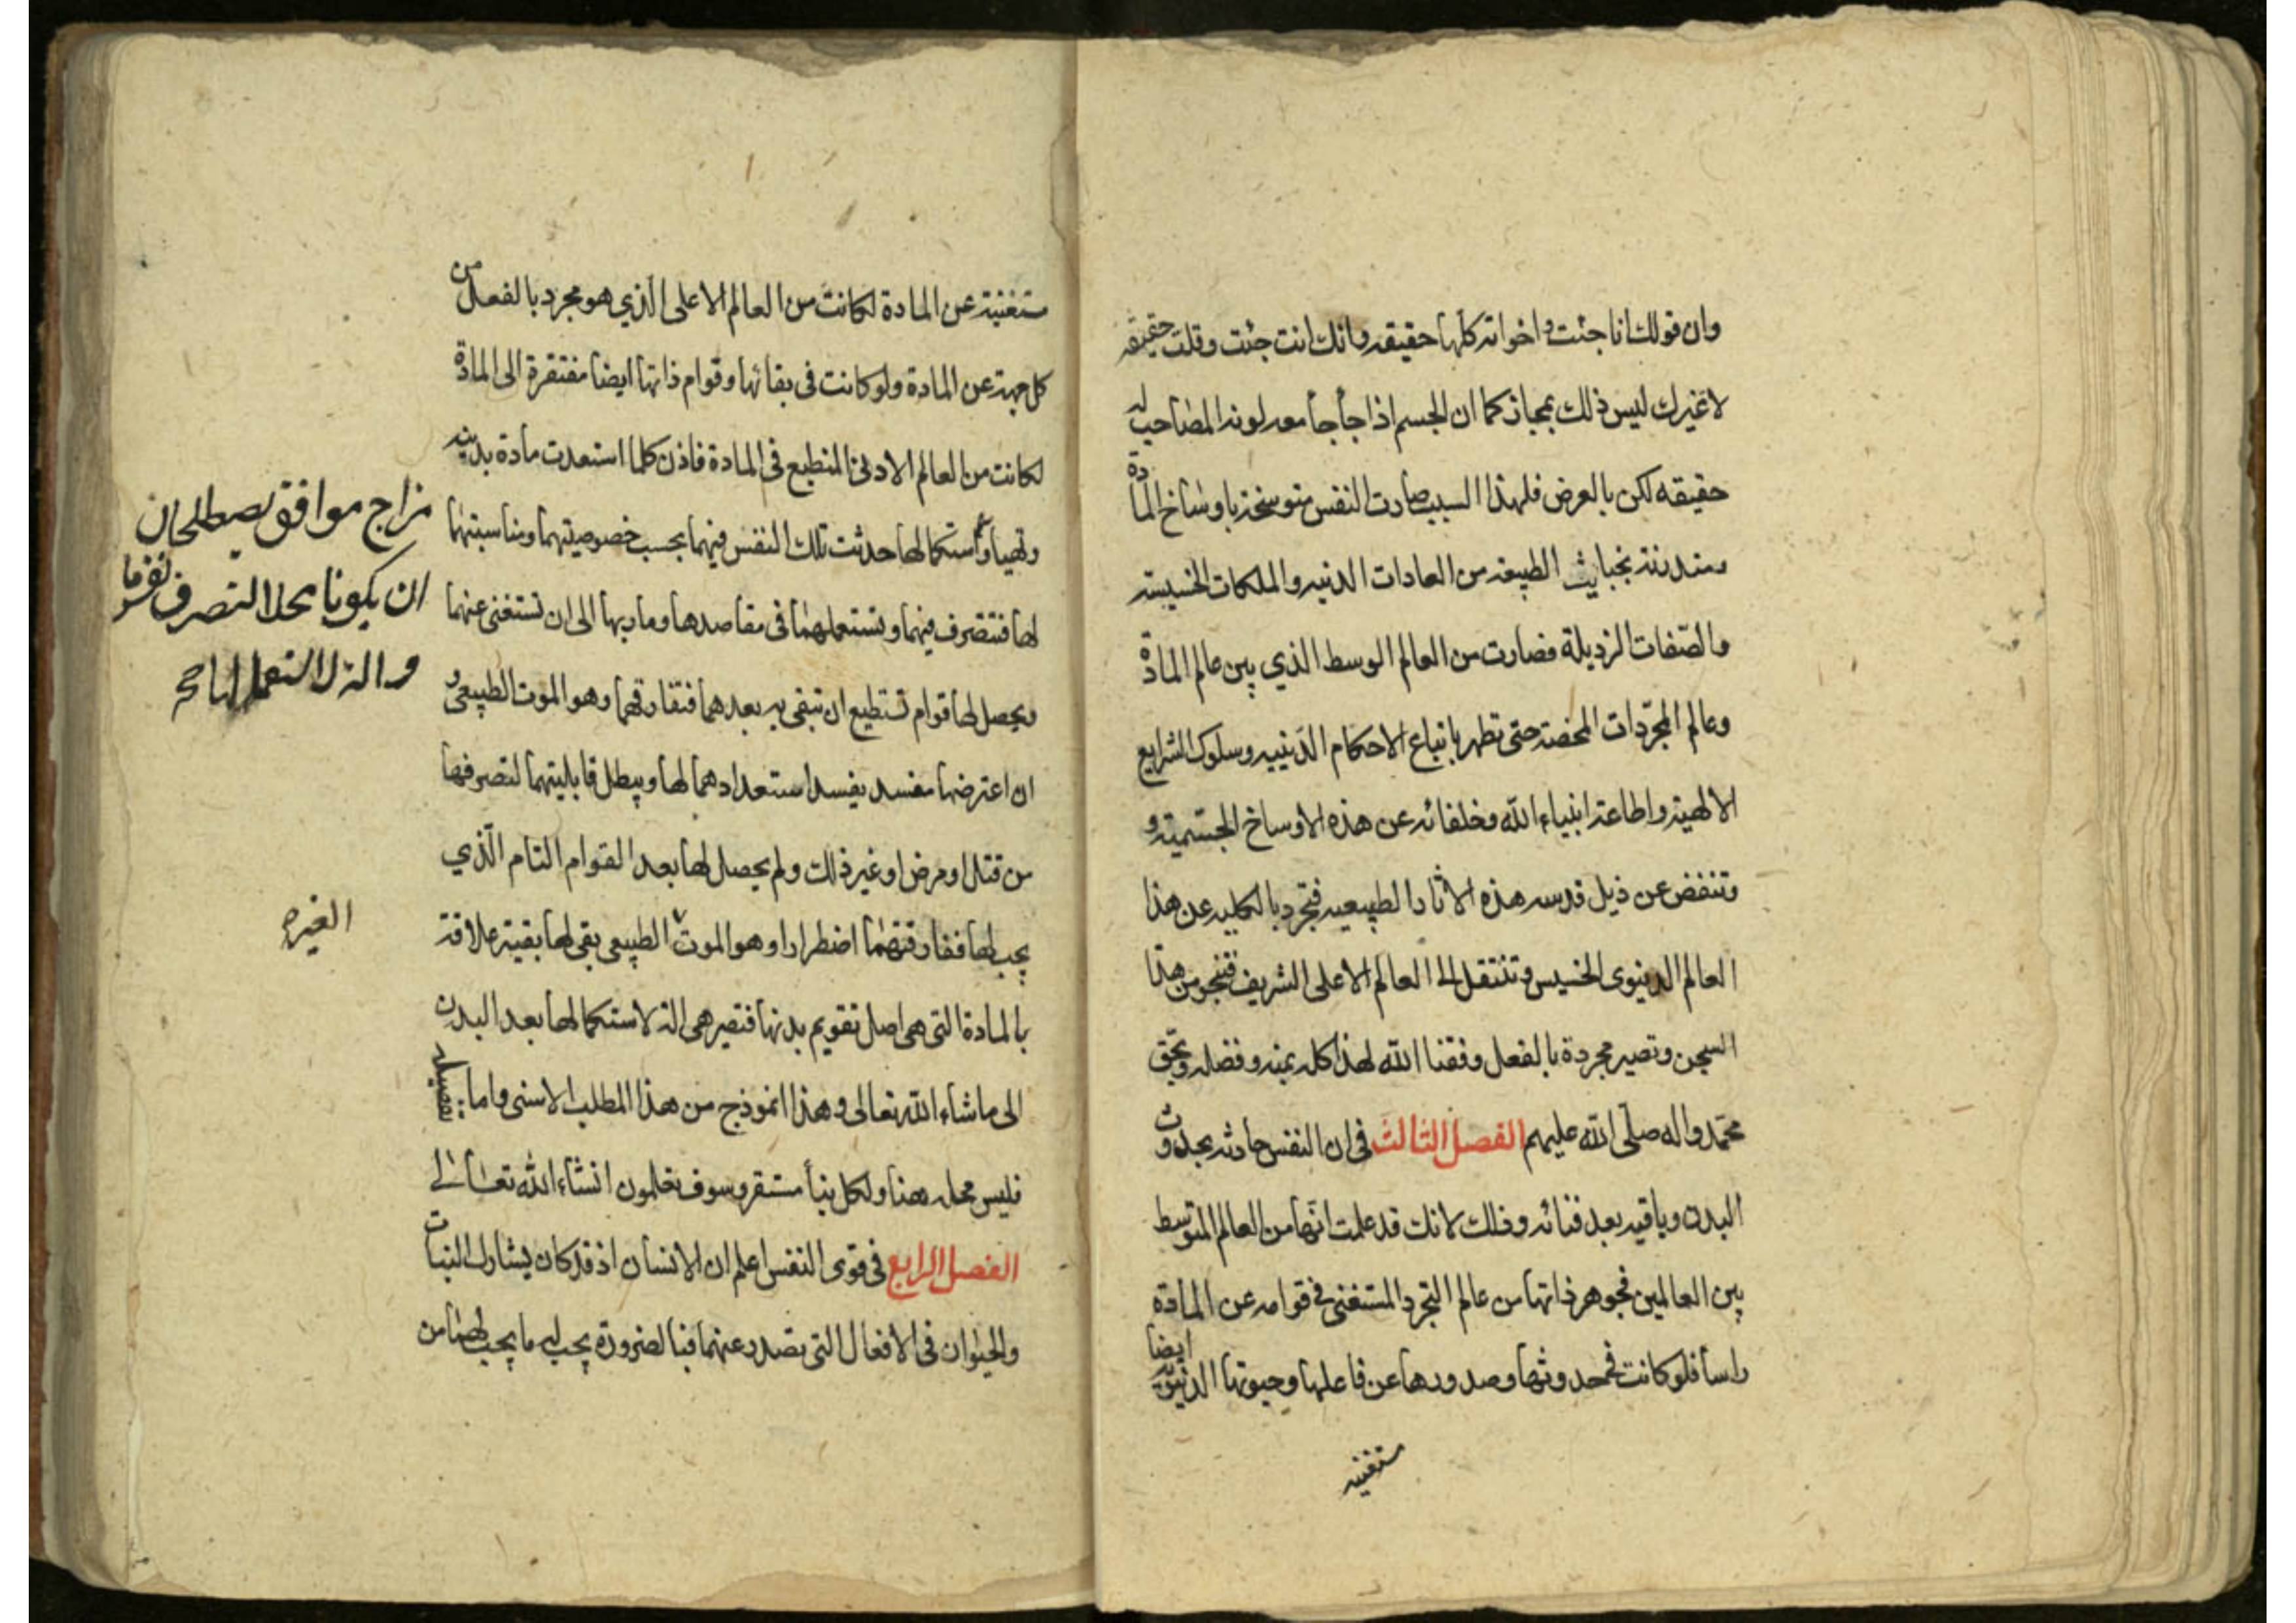 وان قولك انا جئت واخواته كلها حقيقه وانك انت جئت وقلت حقيقه
لاغيرك ليس ذلك بمجاز كما ان الجسم اذا جأ جأ معه لونه المصاحب له
حقيقه لكن بالعرض فلهذا السبب صارت النفس متوسخة باوساخ المادة
ومتدرنة بخبايث الطبيعة من العادات الدنيه والملكات الخسيسة
والصّفات الرذيلة فصارت من العالم الوسط الذي بين عالم المادّة
وعالم المجرّدات المحضة حتى تطهر باتباع الاحكام الدّينيه وسلوك الشرايع
الالهية واطاعة انبياء الله وخلفائه عن هذه الاوساخ الجسّمية و
وتنفض عن ذيل قدسه هذه الاثار الطبيعيه فتجرد بالكليه عن هذا
العالم الدينوى الخسيس وتنتقل الى العالم الاعلى الشريف فتنجو من هذا
السجن وتصير مجردة بالفعل وفقنا الله لهذا كله بمنه وفضله وبحق
محمّد واله صلّى الله عليهم الفصل الثالث فى ان النفس حادثه بحدوث
البدن وباقيه بعد فنائه وذلك لانك قد علمت انّها من العالم المتوسط
بين العالمين فجوهر ذاتها من عالم التجرد المستغنى فى قوامه عن المادة
راسا فلو كانت فى حدوثها وصدورها عن فاعلها وحيوتها الدنيويّه ايضا
مستغنيه
مستغنية عن المادة لكانت من العالم الاعلى الّذي هو مجرد بالفعل من
كل جهة عن المادة ولو كانت فى بقائها وقوام ذاتها ايضا مفتقرة الى المادّة
لكانت من العالم الادنى المنطبع فى المادة فاذن كلما استعدت مادة بدنيه
وتهيا واستكمالها حدثت تلك النفس فيهما بحسب خصوصيتهما ومناسبتهما
لها فتتصرف فيهما وتستعملهما فى مقاصدها وماربها الى ان تستغنى عنهما
ويحصل لها قوام تستطيع ان تبقى به بعدهما فتفارقهما وهو الموت الطبيعى و
ان اعترضها مفسد يفسد استعدادهما لها ويبطل قابليتهما لتصرفها
من قتل او مرض او غير ذلك ولم يحصل لها بعد القوام التام الّذي
يجب لها ففارقتهما اضطرارا وهو الموت الطبيعى بقى لها بقية علاقة
بالمادة التى هى اصل تقويم بدنها فتصير هى الة لاستكمالها بعد البدن
الى ما شاء الله تعالى وهذا انموذج من هذا المطلب الاسنى واما تفصيله
فليس محله هنا ولكل بنأ مستقر وسوف تعلمون انشاء الله تعالى
الفصل الرابع فى قوى النفس اعلم ان الانسان اذ قد كان يشارك النبات
والحيوان فى الافعال التى تصدر عنهما فبالضرورة يجب له ما يجب لهما من
مزاج موافق يصطلحان
ان يكونا محلا لتصرف نفس ما
والة لاستعمالها صح
الغيره